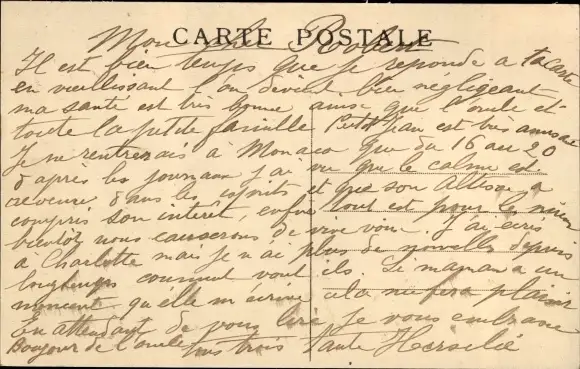 CARTE POSTALE
Mon cher Robert
Il est bien temps que je reponde a ta carte
en vieillissant l'on devient bien négligeant
ma santé est très bonne ainsi que l'oncle et
toute la petite famille Petit Jean est très amusant
Je ne rentrerais à Monaco que du 16 au 20
d'après les journaux j'ai vu que le calme est
revenu dans les esprits et que son Altesse a
compris son intérêt enfin tout est pour le mieux
bientôt nous causerons de vive voix. J'ai écris
à Charlotte mais je n'ai plus de nouvelle depuis
longtemps comment vont ils. Si maman a un
moment qu'elle m'écrive cela me fera plaisir
En attendant de vous lire je vous embrasse
Bonjour de l'oncle tous trois tante Hersélie